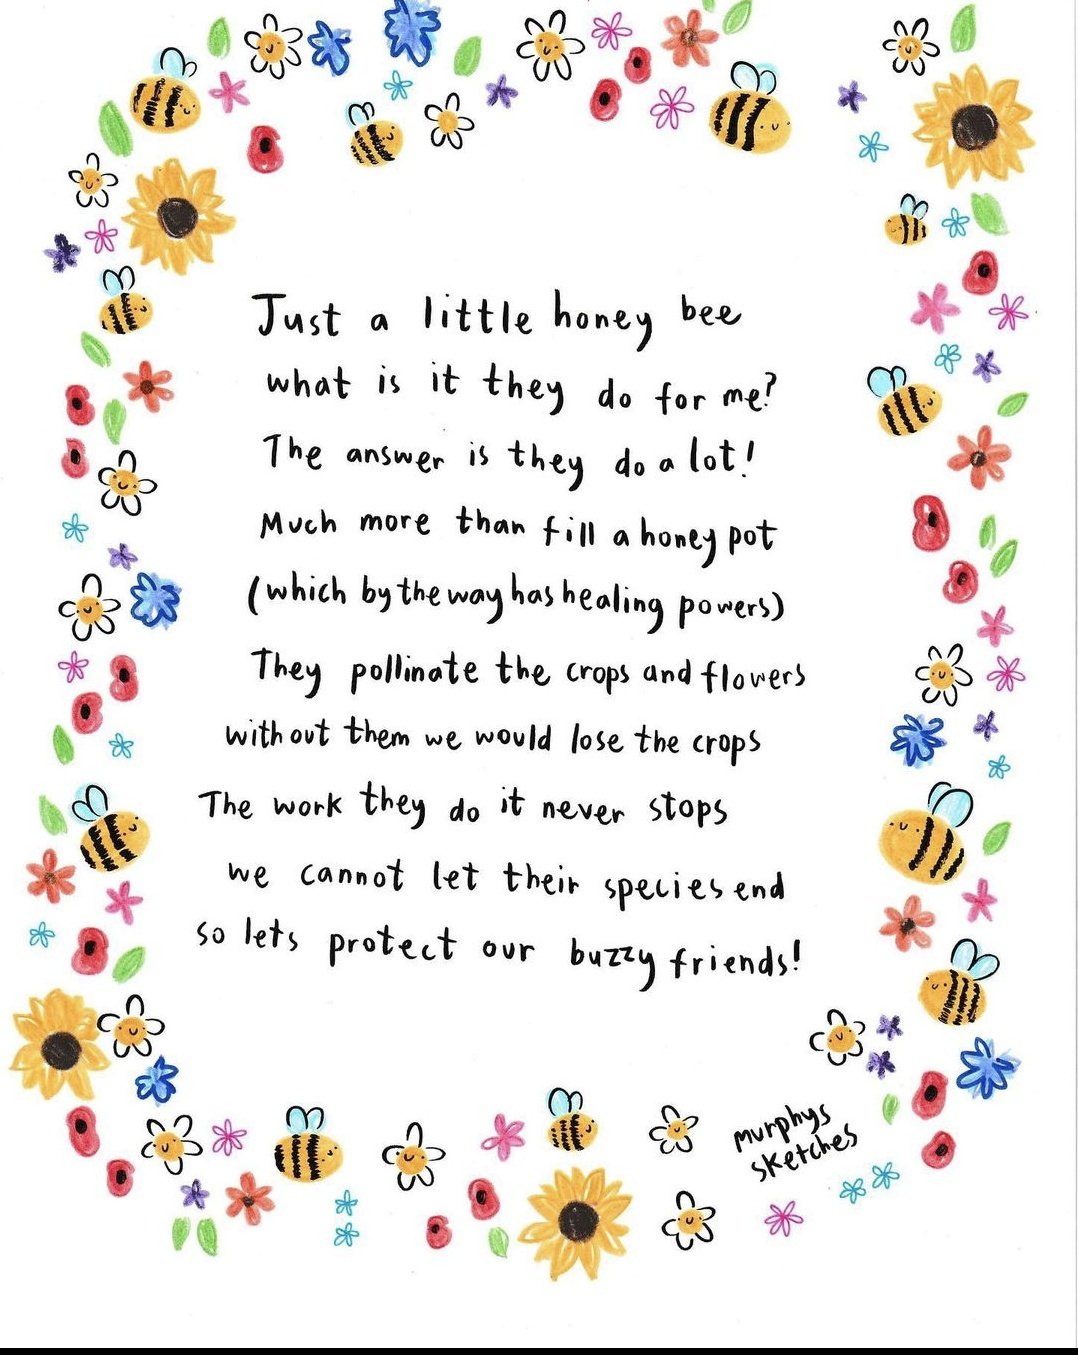 Just a little honey bee
what is it they do for me?
The answer is they do a lot!
Much more than fill a honey pot
(which by the way has healing powers)
They pollinate the crops and flowers
without them we would lose the crops
The work they do it never stops
we cannot let their species end
so lets protect our buzzy friends!
murphys
sketches